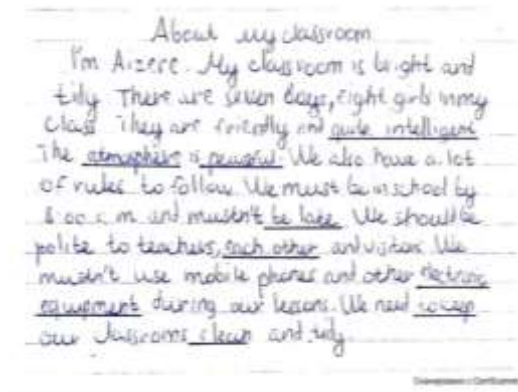 About my classroom
I'm Aizere. My classroom is bright and
tidy There are seven boys, eight girls in my
class They are friendly and quite intelligent
The atmosphere is peaceful. We also have a lot
of rules to follow. We must be in school by
8:00 a.m and mustn't be late. We should be
polite to teachers, each other and visitors. We
mustn't use mobile phones and other electronic
equipment during our lessons. We need to keep
our classrooms clean and tidy.